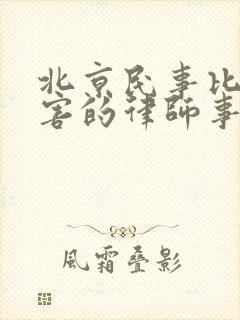 北京民事比
害的律師事
風霜疊影